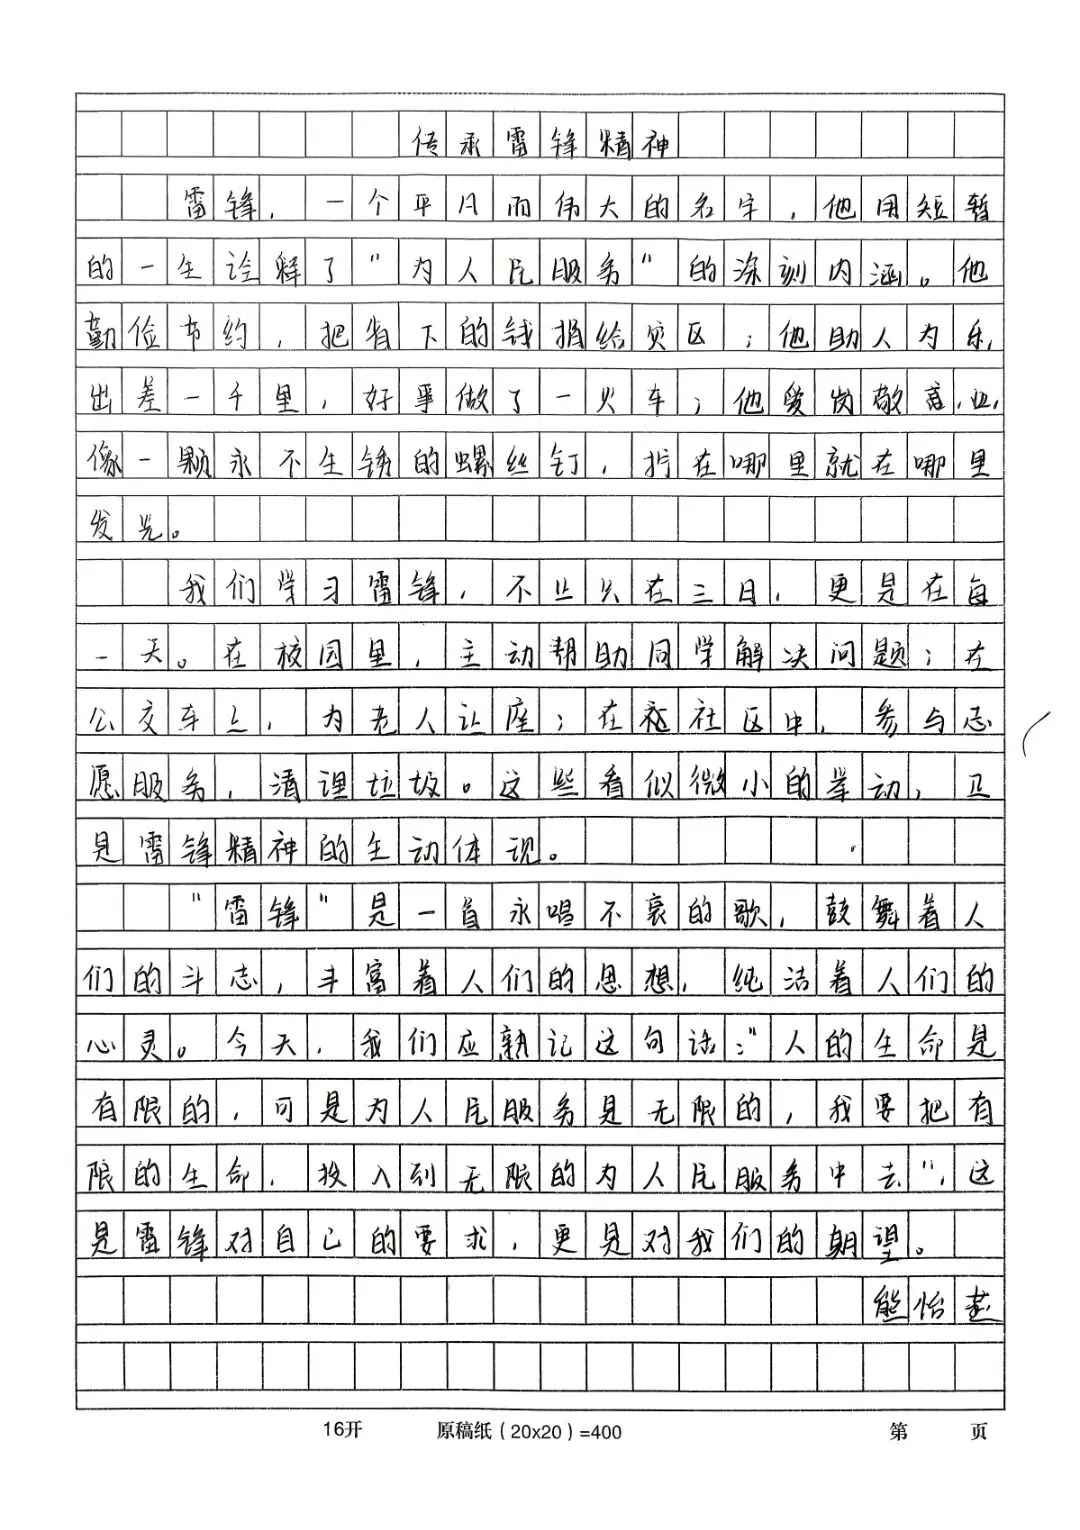 传承雷锋精神
雷锋，一个平凡而伟大的名字，他用短暂
的一生诠释了“为人民服务”的深刻内涵。他
勤俭节约，把省下的钱捐给灾区；他助人为乐，
出差一千里，好事做了一火车；他爱岗敬业，
像一颗永不生锈的螺丝钉，拧在哪里就在哪里
发光。
我们学习雷锋，不止只在三日，更是在每
一天。在校园里，主动帮助同学解决问题；在
公交车上，为老人让座；在社区中，参与志
愿服务，清理垃圾。这些看似微小的举动，正
是雷锋精神的生动体现。
“雷锋”是一首永唱不衰的歌，鼓舞着人
们的斗志，丰富着人们的思想，纯洁着人们的
心灵。今天，我们应熟记这句话：“人的生命是
有限的，可是为人民服务是无限的，我要把有
限的生命，投入到无限的为人民服务中去”，这
是雷锋对自己的要求，更是对我们的期望。
熊怡
16开 原稿纸（20x20）=400 第 页